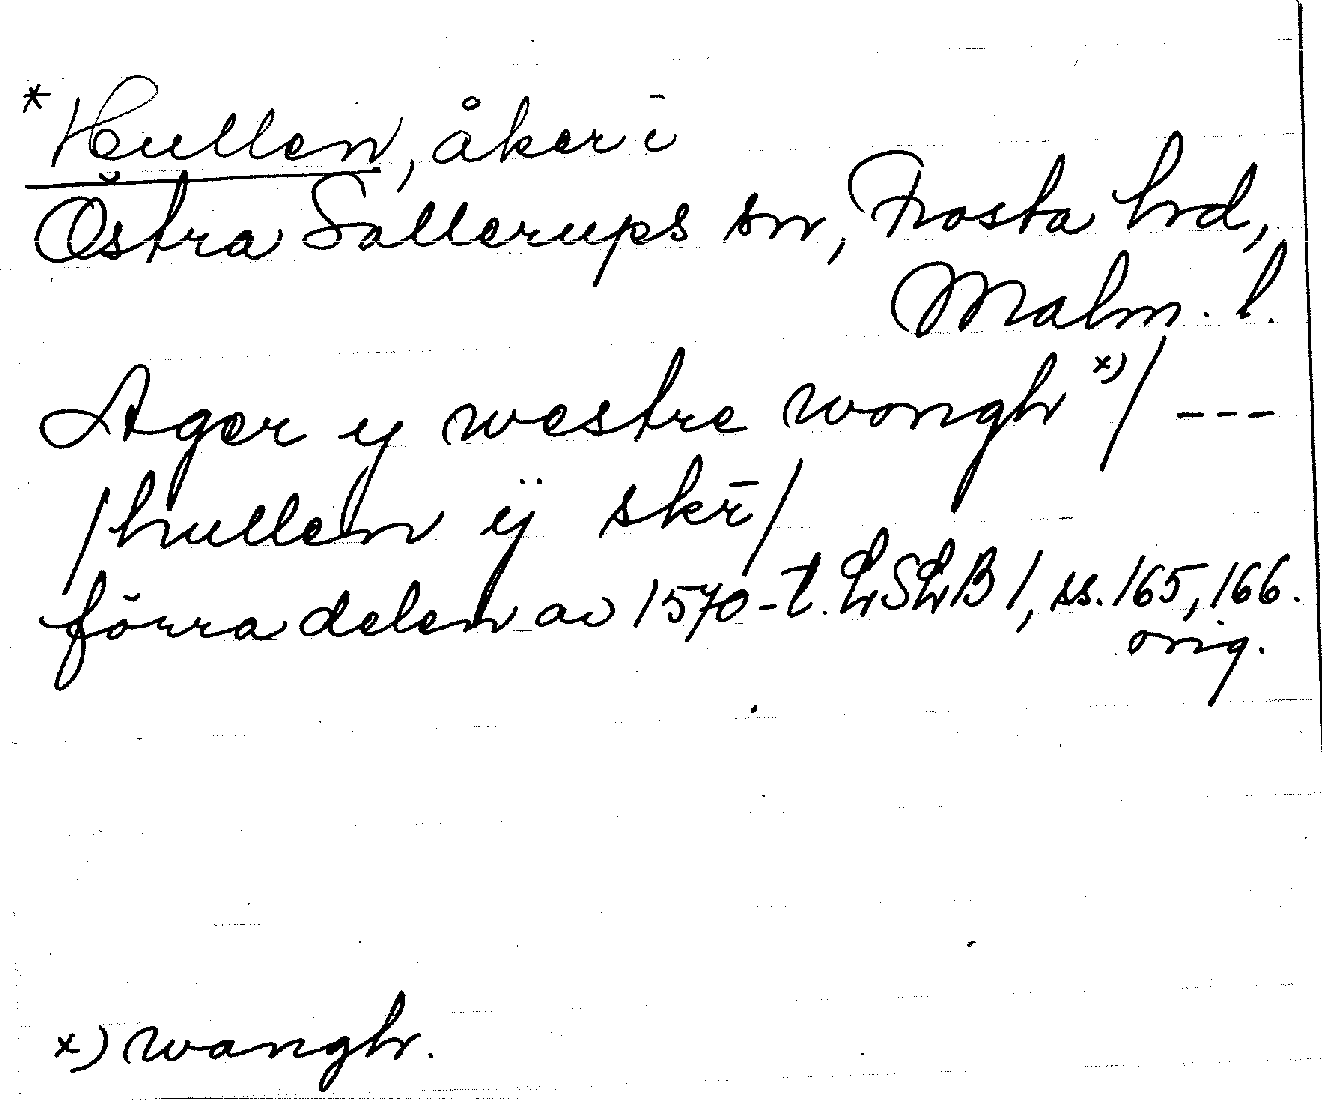 *Hullen, åker i
Östra Sallerups sn, Frosta hrd,
Malm. l.
Ager y westre wongh x)/ ---
/hullen ÿ skr̄/
förra delen av 1570-t. LSLB 1, ss. 165, 166.
orig.
x) wangh.